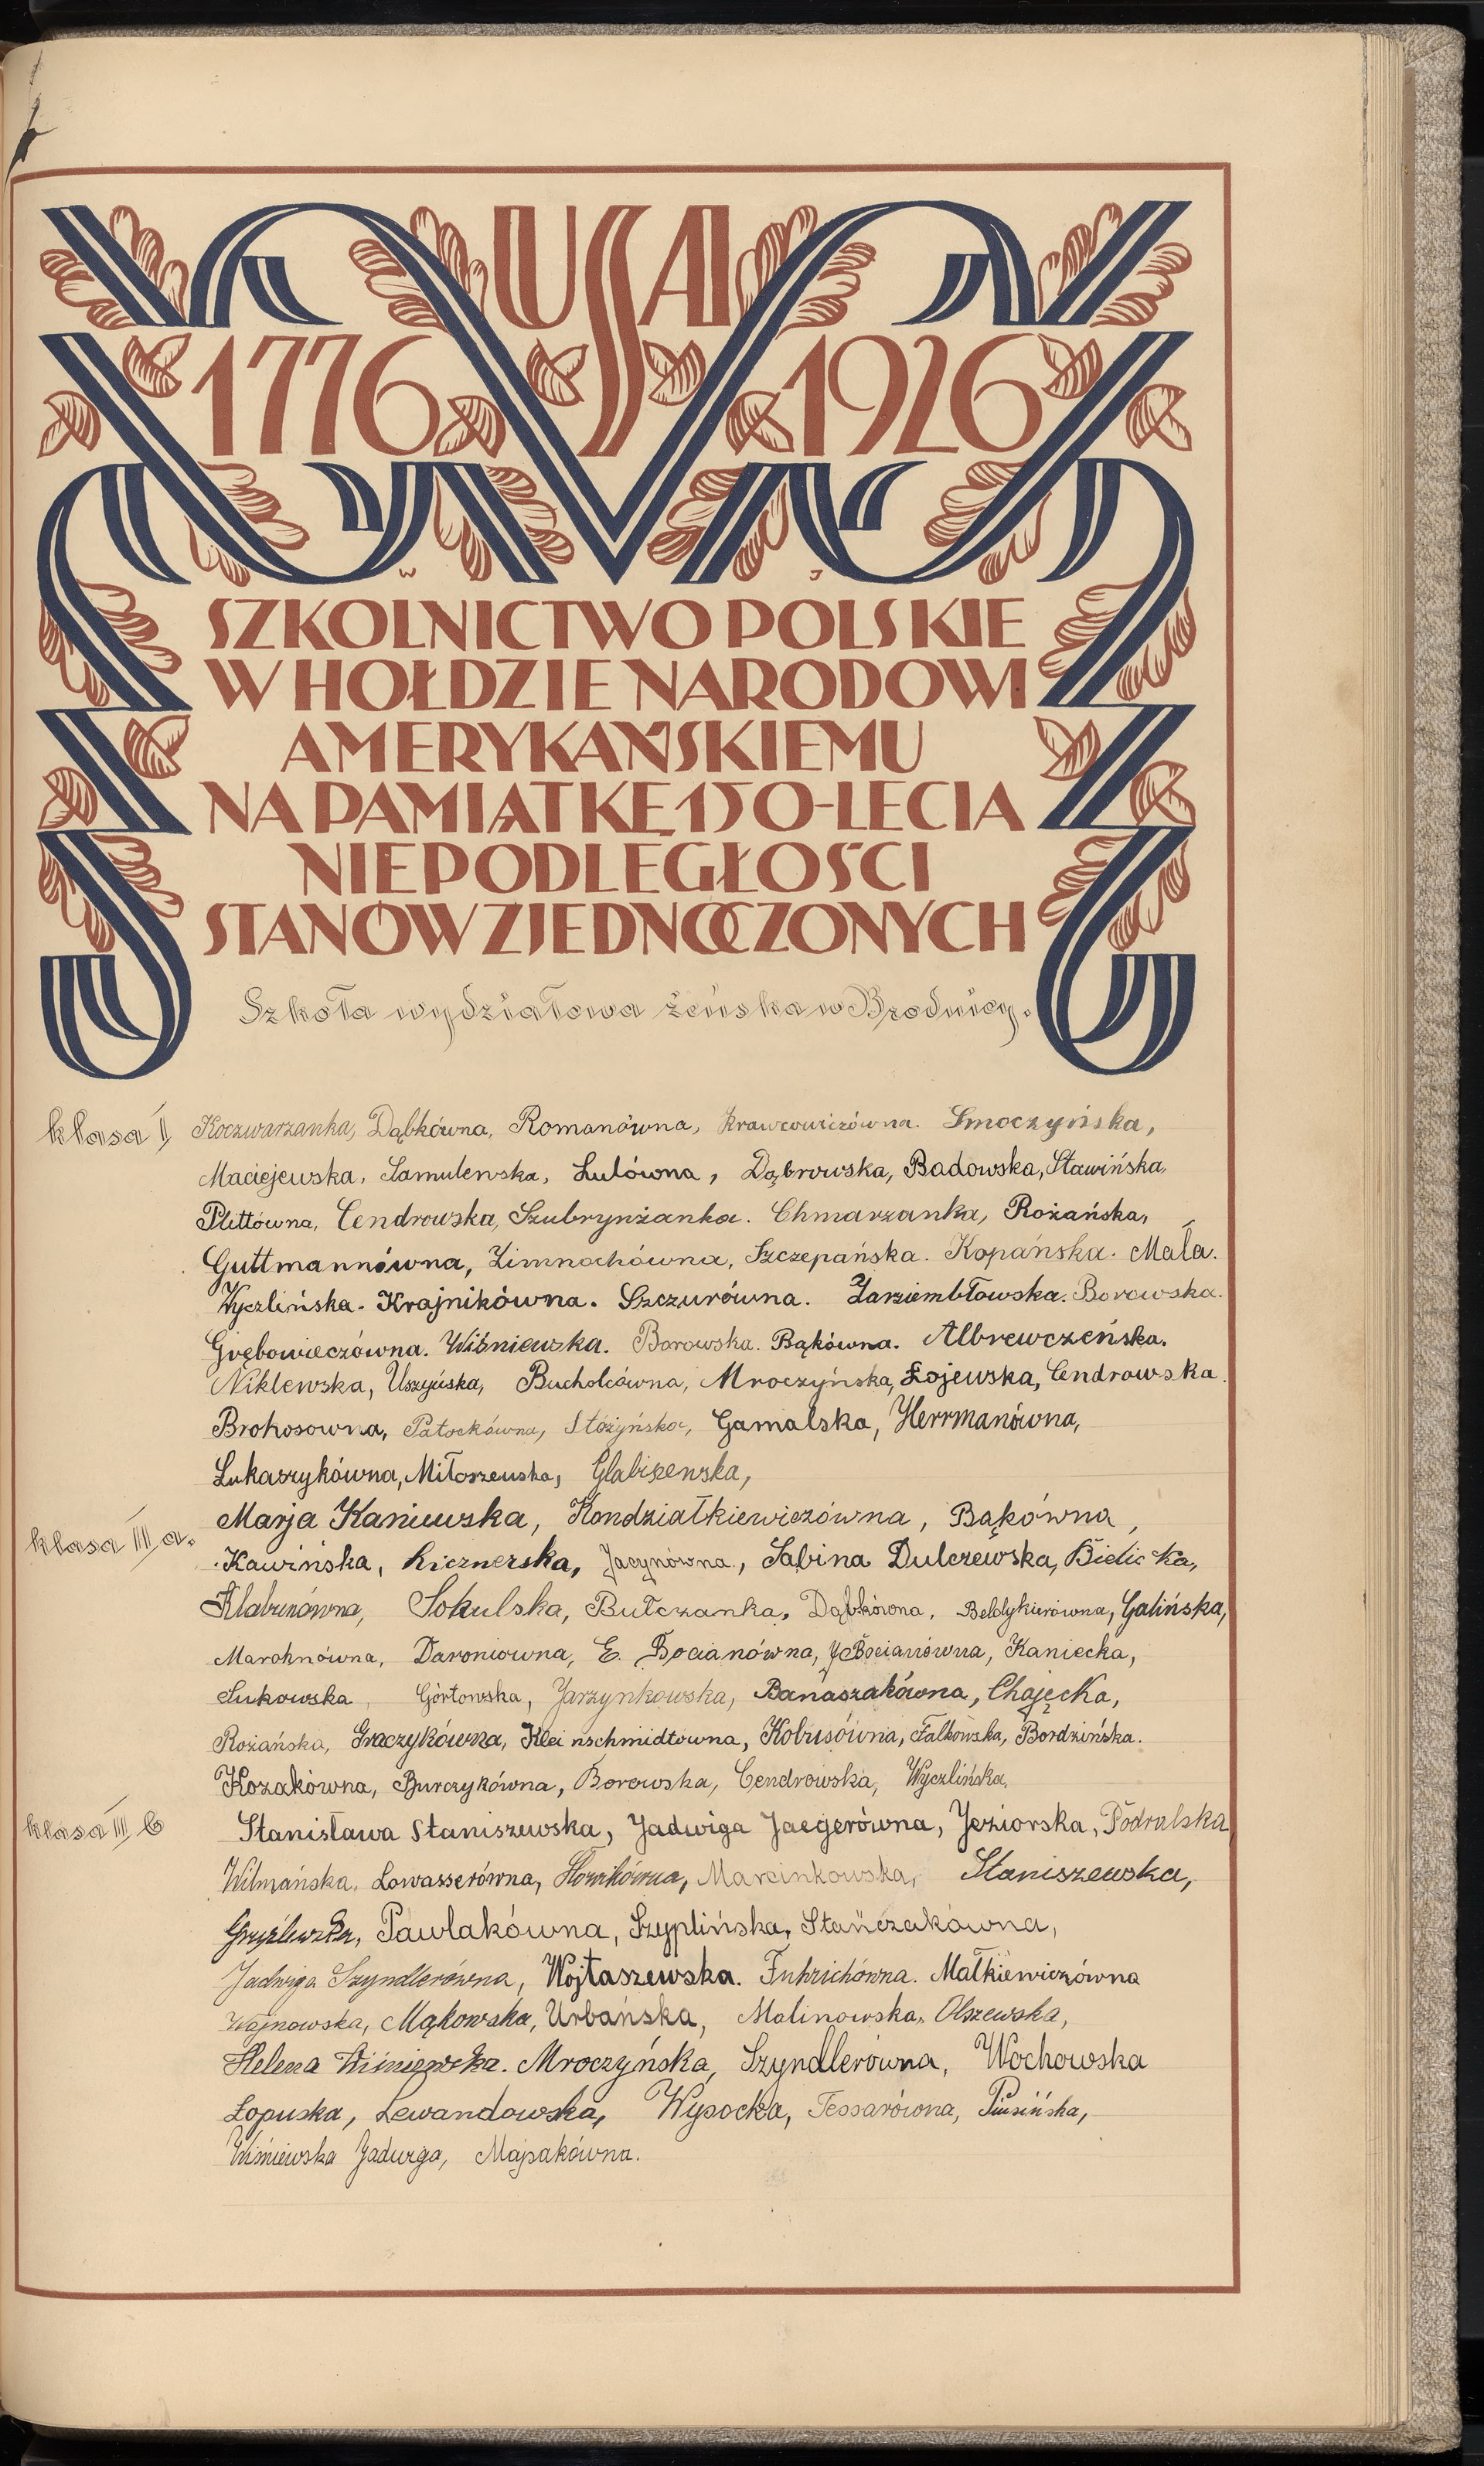 USA
1776 1926
W J
SZKOLNICTWO POLSKIE
W HOŁDZIE NARODOWI
AMERYKAŃSKIEMU
NA PAMIĄTKĘ 150-LECIA
NIEPODLEGŁOŚCI
STANÓW ZJEDNOCZONYCH
Szkoła wydziałowa żeńska w Brodnicy.
klasa I Koczwarzanka, Dąbkówna, Romanówna, Krawcowiczówna. Smoczyńska,
Maciejewska, Samulewska, Lulówna, Dąbrowska, Badowska, Stawińska,
Plittówna, Cendrowska, Szubrynżanka. Chmarzanka, Rożańska,
Guttmannówna, Zimnochówna, Szczepańska. Kopańska. Mała.
Wyczlińska. Krajnikówna. Szczurówna. Zarziembłowska. Borowska.
Grębowieczówna. Wiśniewska. Borowska. Bąkówna. Albrewczeńska.
Niklewska, Uszyńska, Bucholcówna, Mroczyńska, Łojewska, Cendrowska.
Brohosowna, Patockówna, Stóżyńska, Gamalska, Herrmanówna,
Łukaszykówna, Miłoszewska, Glabiszewska,
klasa III a. Marja Kaniewska, Kondziałkiewiczówna, Bąkówna,
Kawińska, Licznerska, Jacynówna, Sabina Dulczewska, Bielicka,
Klabunówna, Sokulska, Bułczanka, Dąbkówna, Beldykierówna, Galińska,
Marohnówna, Daroniowna, E. Bocianówna, J. Bocianówna, Kaniecka,
Sukowska, Górtowska, Jarzynkowska, Banaszakówna, Chajęcka,
Rożańska, Graczykówna, Kleinschmidtowna, Kobusówna, Falkowska, Bordzińska.
Kozakówna, Burczykówna, Borowska, Cendrowska, Wyczlińska,
klasa III b Stanisława Staniszewska, Jadwiga Jaegerówna, Jeziorska, Podralska
Wilmańska, Lowasserówna, Marcinkowska, Staniszewska,
Gryźlewska, Pawlakówna, Szyplińska, Stańczakówna,
Jadwiga Szyndlerówna, Wojtaszewska. Fuhrichówna. Małkiewiczówna
Wojnowska, Mąkowska, Urbańska, Malinowska, Olszewska,
Helena Wiśniewska. Mroczyńska, Szyndlerówna, Wochowska
Łopuska, Lewandowska, Wysocka, Tessarówna, Piusińska,
Wiśniewska Jadwiga, Majsakówna.